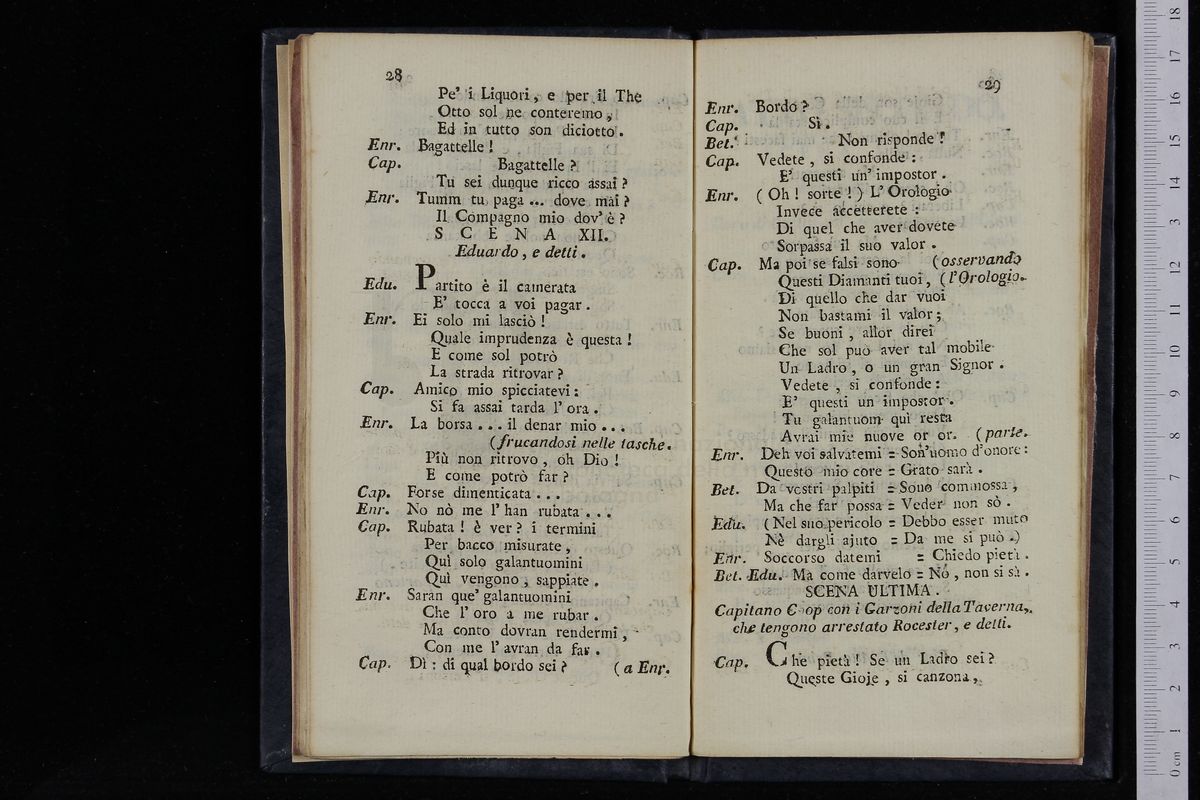 28
Pe' i Liquori, e per il The
Otto sol ne conteremo,
Ed in tutto son diciotto.
Enr. Bagattelle!
Cap. Bagattelle?
Tu sei dunque ricco assai?
Enr. Tumm tu paga ... dove mai?
Il Compagno mio dov' è?
SCENA XII.
Eduardo, e detti.
Edu. Partito è il camerata
E' tocca a voi pagar.
Enr. Ei solo mi lasciò!
Quale imprudenza è questa!
E come sol potrò
La strada ritrovar?
Cap. Amico mio spicciatevi:
Si fa assai tarda l' ora.
Enr. La borsa ... il denar mio ...
(frucandosi nelle tasche.
Più non ritrovo, oh Dio!
E come potrò far?
Cap. Forse dimenticata ...
Enr. No nò me l' han rubata ...
Cap. Rubata! è ver? i termini
Per bacco misurate,
Quì solo galantuomini
Quì vengono, sappiate.
Enr. Saran que' galantuomini
Che l' oro a me rubar.
Ma conto dovran rendermi,
Con me l' avran da far.
Cap. Dì: di qual bordo sei? (a Enr.
29
Enr. Bordo?
Cap. Sì.
Bet. Non risponde!
Cap. Vedete, si confonde:
E' questi un' impostor.
Enr. (Oh! sorte!) L' Orologio
Invece accetterete:
Di quel che aver dovete
Sorpassa il suo valor.
Cap. Ma poi se falsi sono (osservando
Questi Diamanti tuoi, (l'Orologio.
Di quello che dar vuoi
Non bastami il valor;
Se buoni, allor direi
Che sol può aver tal mobile
Un Ladro, o un gran Signor.
Vedete, si confonde:
E' questi un impostor.
Tu galantuom quì resta
Avrai mie nuove or or. (parte.
Enr. Deh voi salvatemi = Son' uomo d'onore:
Questo mio core = Grato sarà.
Bet. Da vostri palpiti = Sono commossa,
Ma che far possa = Veder non sò.
Edu. (Nel suo pericolo = Debbo esser muto
Nè dargli ajuto = Da me si può.)
Enr. Soccorso datemi = Chiedo pietà.
Bet. Edu. Ma come darvelo = Nò, non si sà.
SCENA ULTIMA.
Capitano Cop con i Garzoni della Taverna,
che tengono arrestato Rocester, e detti.
Cap. Che pietà! Se un Ladro sei?
Queste Gioje, si canzona,